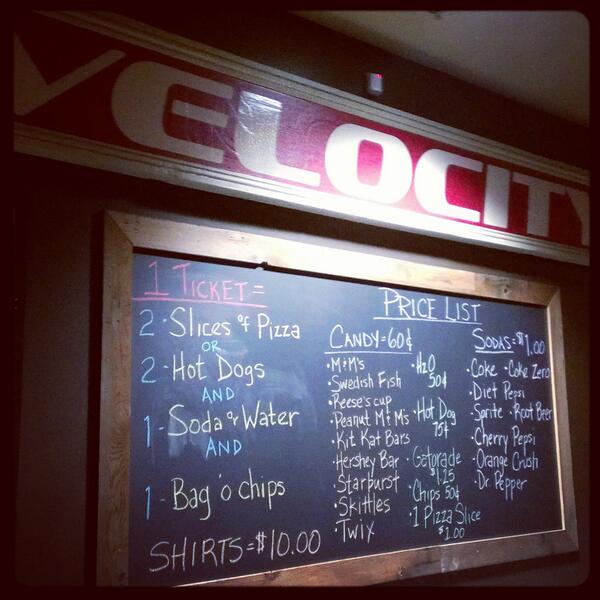 VELOCITY
1 TICKET =
2 - Slices of Pizza
OR
2 - Hot Dogs
AND
1 - Soda or Water
AND
1 - Bag 'o chips
SHIRTS = $10.00
PRICE LIST
CANDY = 60¢
• M+M's
• Swedish Fish
• Reese's cup
• Peanut M+M's
• Kit Kat Bars
• Hershey Bar
• Starburst
• Skittles
• Twix
• H2O
50¢
• Hot Dog
75¢
• Gatorade
$1.25
• Chips 50¢
• 1 Pizza Slice
$1.00
SODAS = $1.00
• Coke • Coke Zero
• Diet Pepsi
• Sprite • Root Beer
• Cherry Pepsi
• Orange Crush
• Dr. Pepper